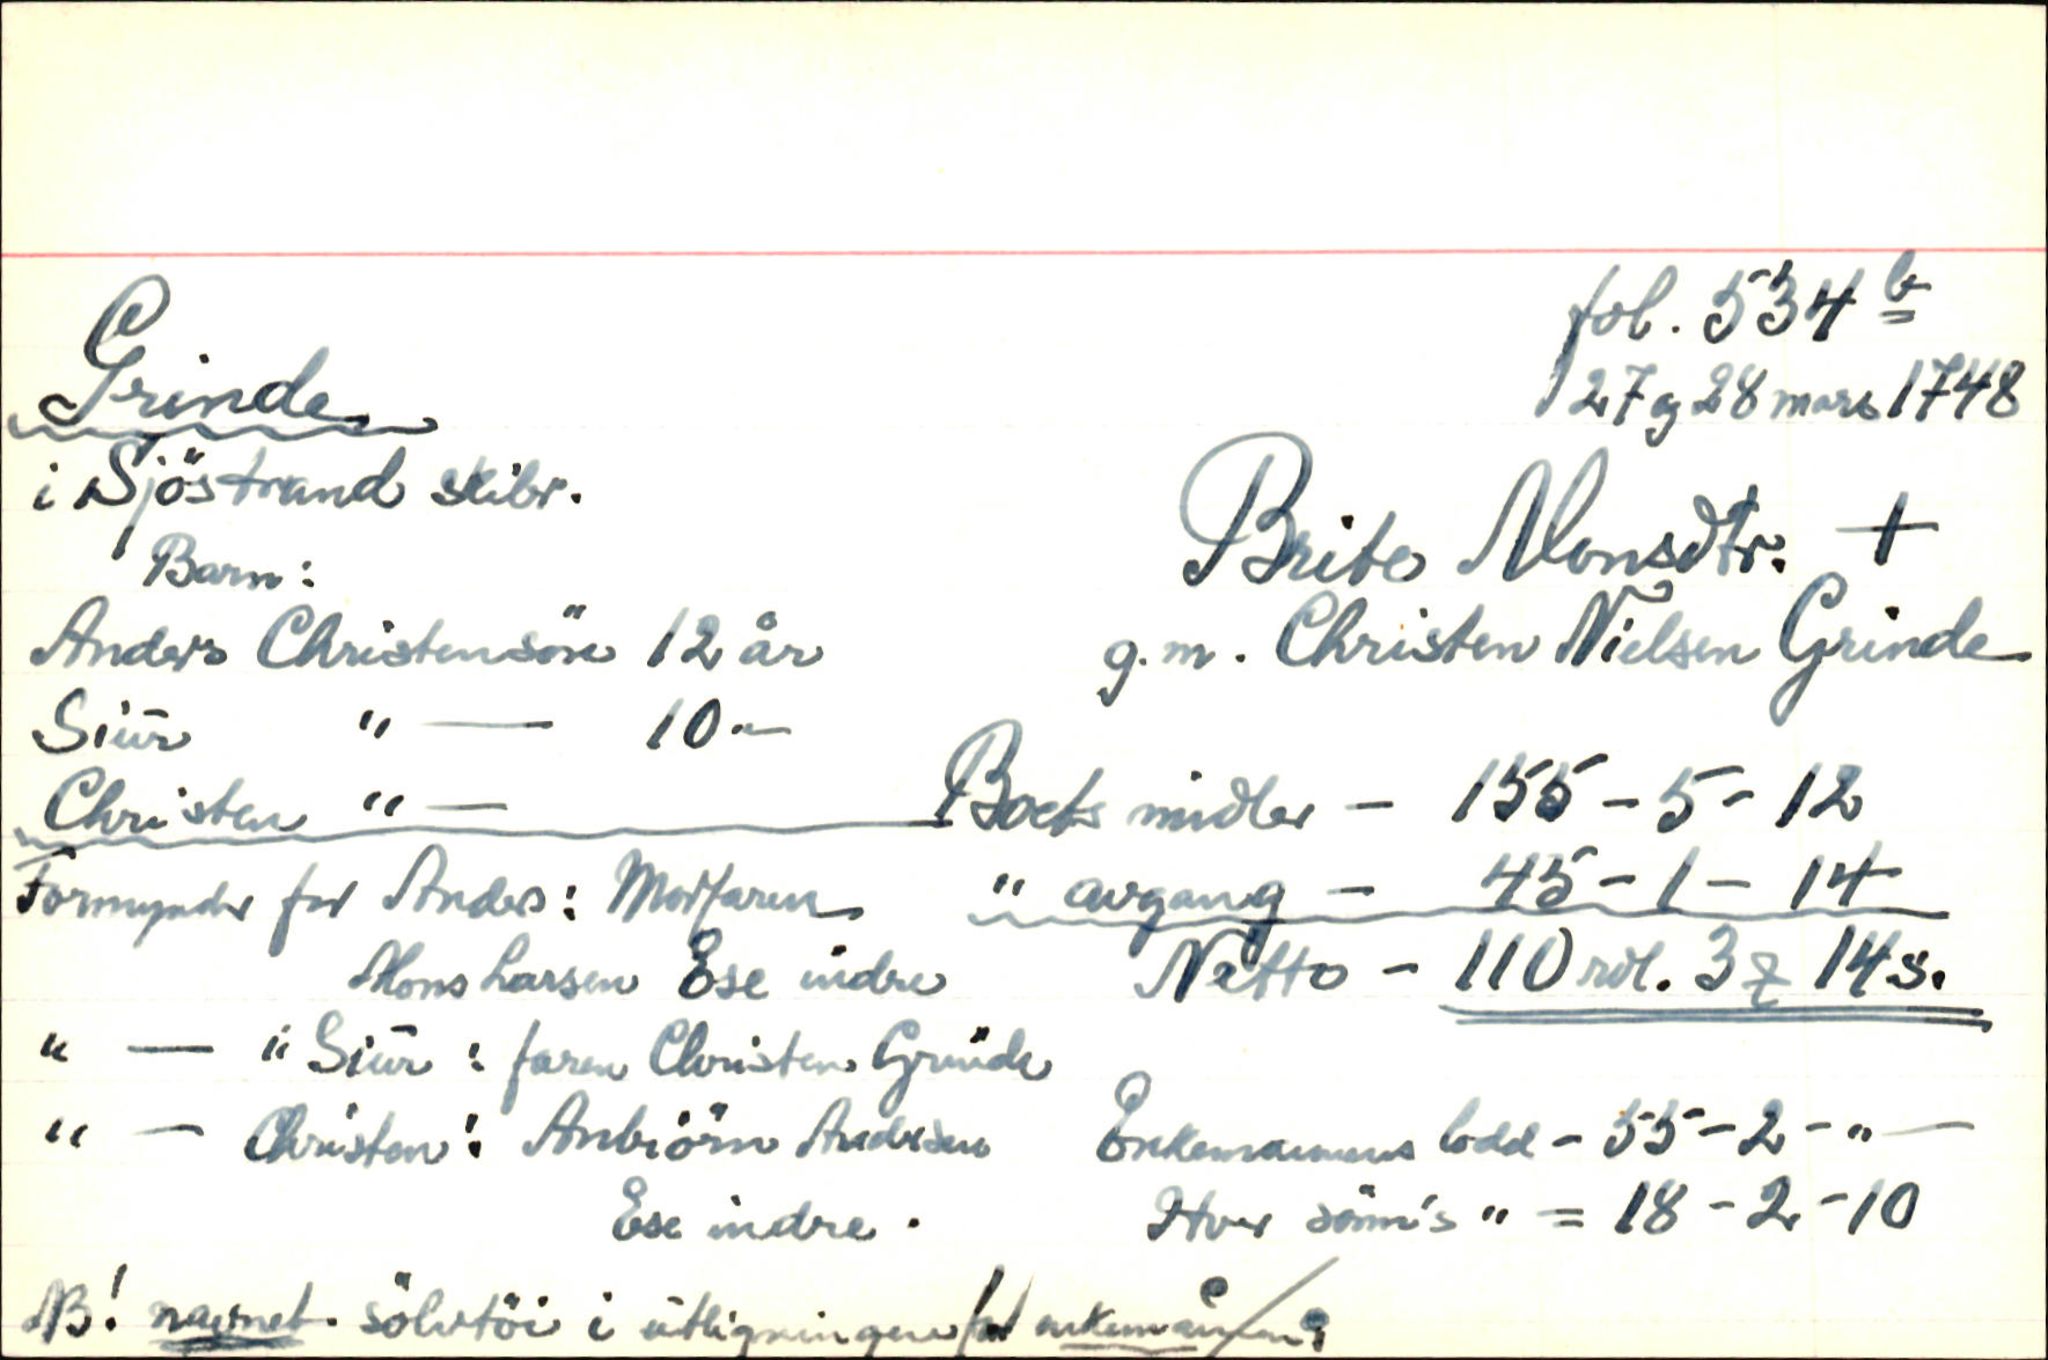 fol. 534 b
27 og 28 mars 1748
Grinde
i Sjöstrand skibr.
Brite Monsdtr. +
g. m. Christen Nielsen Grinde
Barn:
Anders Christensön 12 år
Siur " — 10 "—
Christen " —
Boets midler - 155 - 5 - 12
" avgang - 45 - 1 - 14
Netto - 110 rdl. 3 14 s.
Formynder for Anders: Morfaren
Mons Larsen Ese indre
" — " Siur: faren Christen Grinde
" — Christen: Anbiörn Andersen
Ese indre.
Enkemannens lodd - 55 - 2 - " —
Hver sönn's " = 18 - 2 - 10
NB! navnet. sölvtöi i utligningen for enkemannen